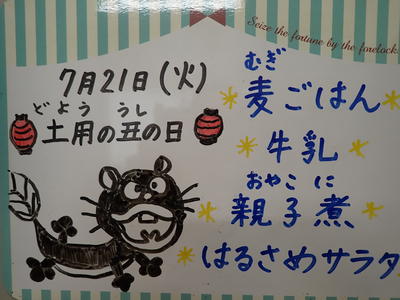 Seize the fortune by the forelock.
7月21日(火)
どよう うし
土用の丑の日
むぎ
麦ごはん
牛乳
おやこ に
親子煮
はるさめサラダ